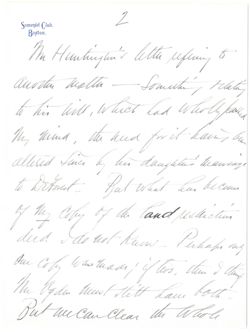 Somerset Club,
Boston.
2
Mr Huntington's letter refering to
another matter — Something relating
to his will, which had wholly passed
my mind, the need for it having been
altered since by his daughter's marriage
to DeForest. But what has become
of my copy of the land restriction
deed I do not know. Perhaps only
one copy was made; if two, then I think
Mr Ogden must still have both.
But we can clear the whole